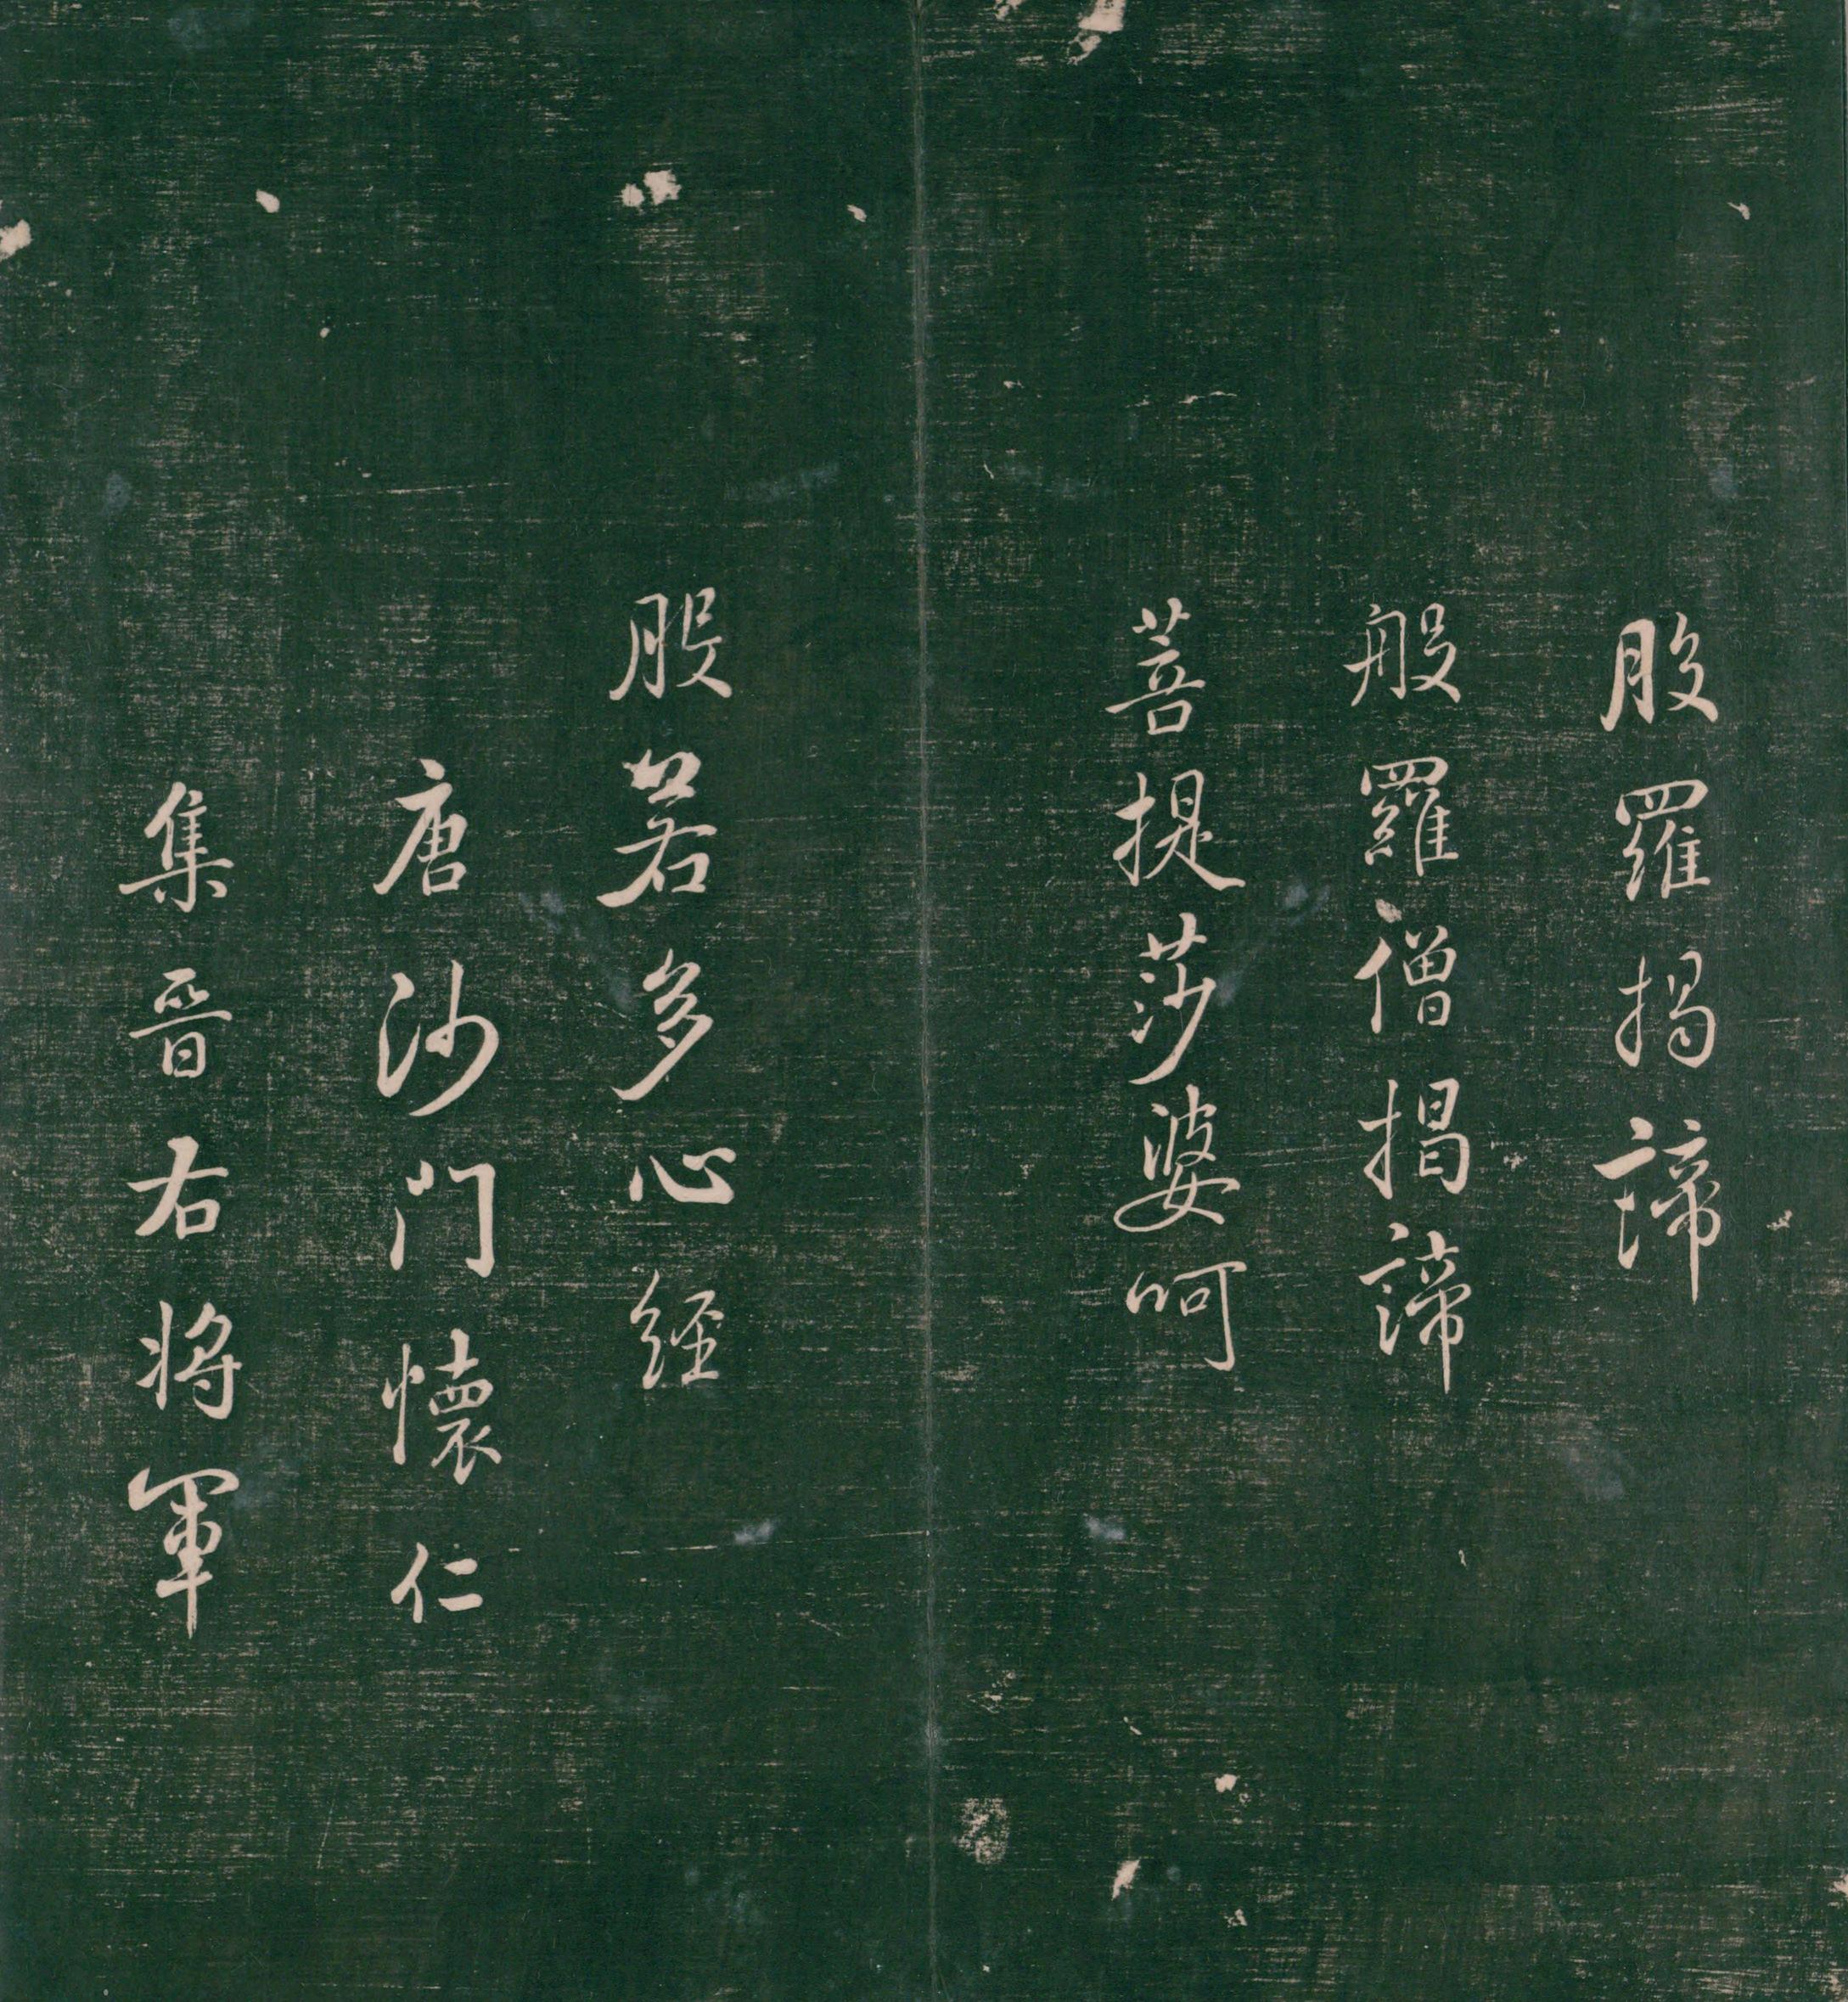 般羅揭諦
般羅僧揭諦
菩提莎婆呵
般若多心經
唐沙門懷仁
集晉右将軍